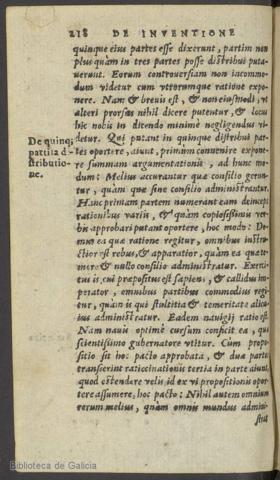 218 DE INVENTIONE
quinque eius partes esse dixerunt, partim non
plus quàm in tres partes posse distribui puta-
uerunt. Eorum controuersiam non incommo-
dum videtur cum vtrorumque ratione expo-
nere. Nam & breuis est, & non eiusmodi, vt
alteri prorsus nihil dicere putentur, & locus
hic nobis in dicendo minimè negligendus vi-
detur. Qui putant in quinque distribui par-
De quinq; partita distributio-
ne.
tes oportere, aiunt, primùm conuenire expone-
re summam argumentationis, ad hunc mo-
dum: Meliùs accurantur quæ consilio gerun-
tur, quàm quæ sine consilio administrantur.
Hanc primam partem numerant: eam deinceps
rationibus variis, & quàm copiosissimis ver-
bis approbari putant oportere, hoc modo: Do-
mus ea quæ ratione regitur, omnibus instru-
ctior est rebus, & apparatior, quàm ea quæ te-
merè & nullo consilio administratur. Exerci-
tus is, cui præpositus est sapiens, & callidus im-
perator, omnibus partibus commodiùs regi-
tur, quàm is qui stultitia & temeritate alicu-
ius administratur. Eadem nauigij ratio est.
Nam nauis optimè cursum conficit ea, qui
scientissimo gubernatore vtitur. Cùm propo-
sitio sit hoc pacto approbata, & duæ partes
transierint ratiocinationis tertia in parte aiunt,
quod ostendere velis, id ex vi propositionis opor-
tere assumere, hoc pacto: Nihil autem omnium
rerum meliùs, quàm omnis mundus admini-
strat
Biblioteca de Galicia